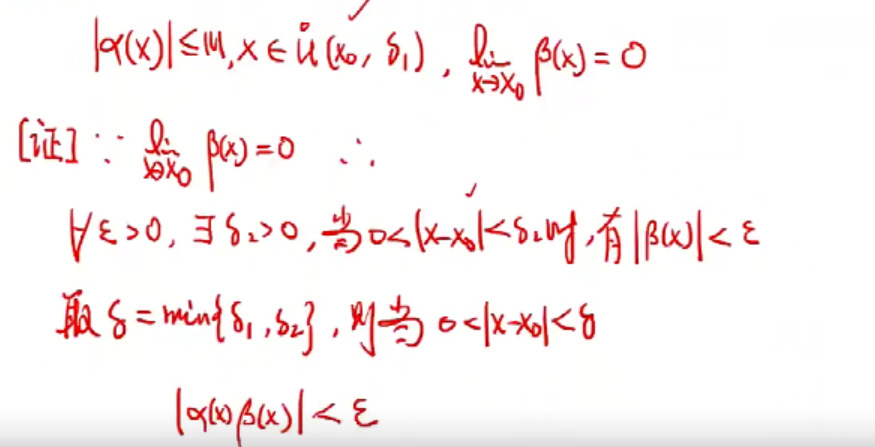 |α(x)|≤M, x∈Ů(x₀, δ₁), lim_{x→x₀} β(x)=0
[证] ∵ lim_{x→x₀} β(x)=0 ∴
∀ε>0, ∃δ₂>0, 当0<|x-x₀|<δ₂时, 有|β(x)|<ε
取δ=min{δ₁,δ₂}, 则当0<|x-x₀|<δ
|α(x)β(x)|<ε